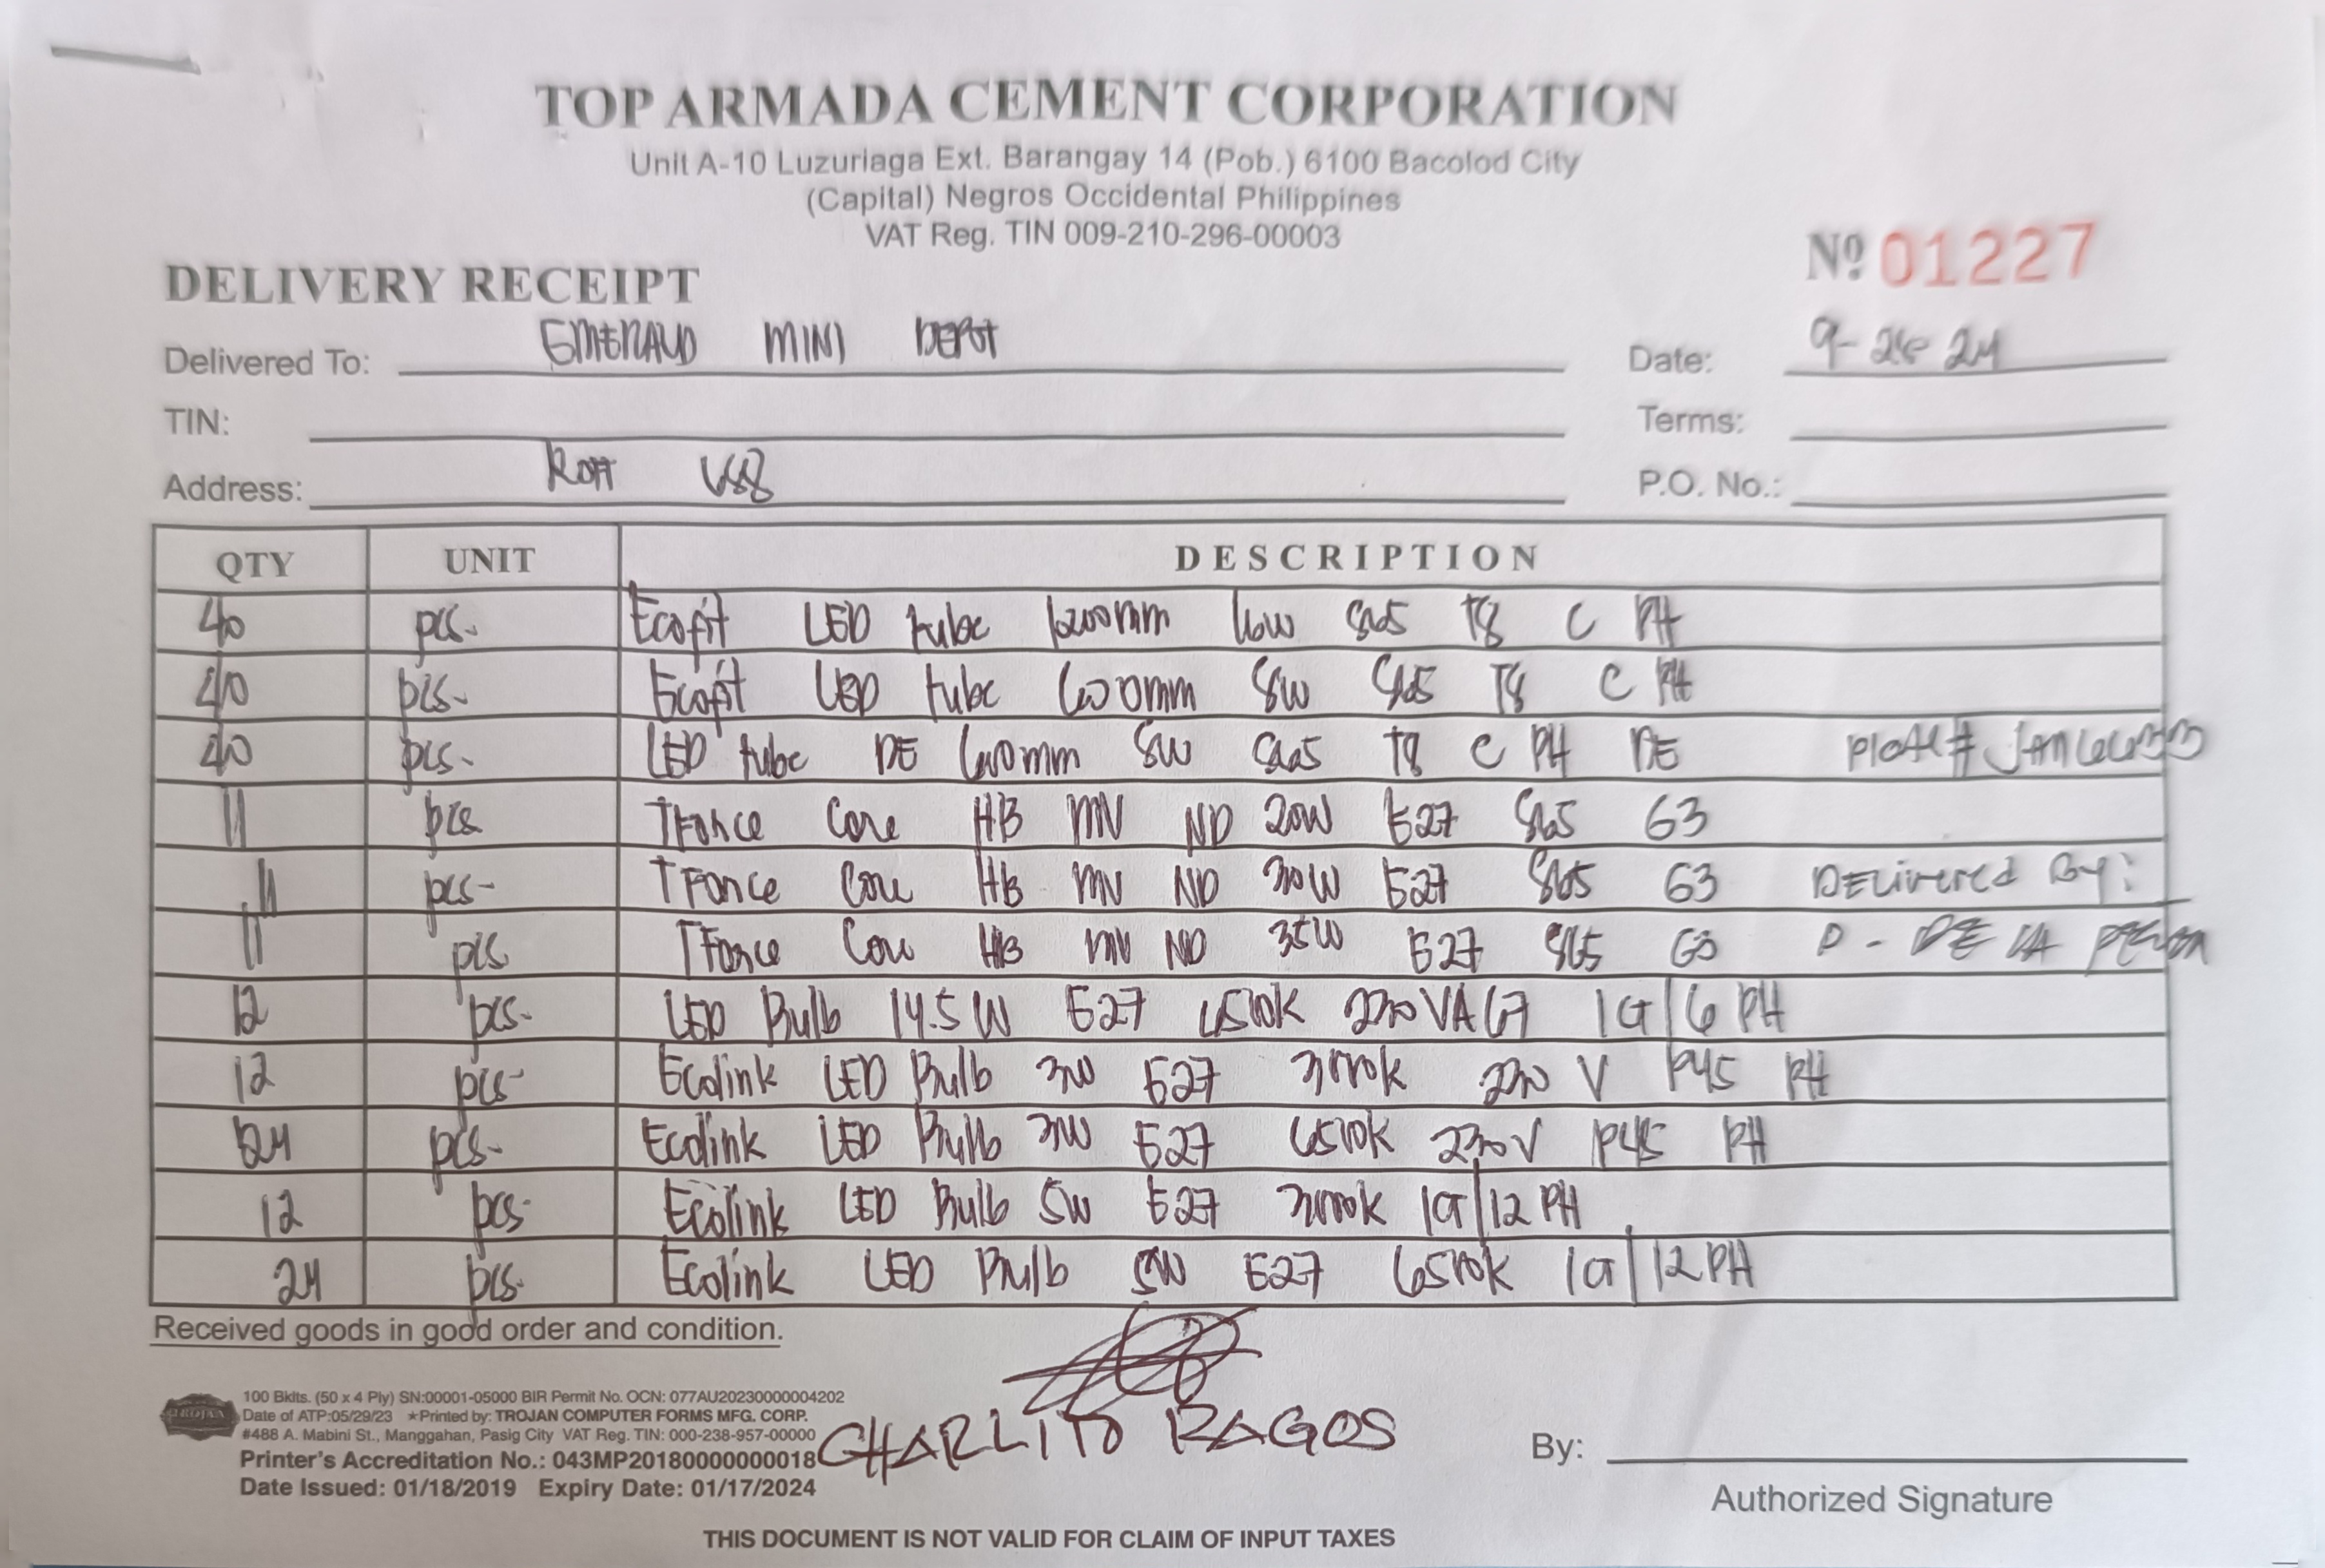 TOP ARMADA CEMENT CORPORATION
Unit A-10 Luzuriaga Ext. Barangay 14 (Pob.) 6100 Bacolod City
(Capital) Negros Occidental Philippines
VAT Reg. TIN 009-210-296-00003
№ 01227
DELIVERY RECEIPT
Delivered To: EMERALD MINI DEPOT
Date: 9-26-24
TIN:
Terms:
Address:
P.O. No.:
QTY UNIT DESCRIPTION
40 pcs. Ecofit LED tube 1200mm 16W 865 T8 C PH
40 pcs. Ecofit LED tube 600mm 8W 865 T8 C PH
40 pcs. LED tube DE 600mm 8W 865 T8 C PH DE Plate#
11 pcs TForce Core HB MV ND 20W E27 865 G3
11 pcs- TForce Core HB MV ND 30W E27 865 G3 Delivered By:
11 pcs TForce Core HB MV ND 35W E27 865 G3 P - DE LA
12 pcs. LED Bulb 14.5W E27 6500k 230V A67 1CT/6 PH
12 pcs- Ecolink LED Bulb 3W E27 3000k 230 V P45 PH
24 pcs- Ecolink LED Bulb 3W E27 6500k 230V P45 PH
12 pcs- Ecolink LED Bulb 5W E27 3000k 1CT/12 PH
24 pcs. Ecolink LED Bulb 5W E27 6500k 1CT/12 PH
Received goods in good order and condition.
TROJAN
100 Bklts. (50 x 4 Ply) SN:00001-05000 BIR Permit No. OCN: 077AU20230000004202
Date of ATP:05/29/23 ★Printed by: TROJAN COMPUTER FORMS MFG. CORP.
#488 A. Mabini St., Manggahan, Pasig City VAT Reg. TIN: 000-238-957-00000
Printer's Accreditation No.: 043MP20180000000018
Date Issued: 01/18/2019 Expiry Date: 01/17/2024
CHARLITO RAGOS
By:
Authorized Signature
THIS DOCUMENT IS NOT VALID FOR CLAIM OF INPUT TAXES